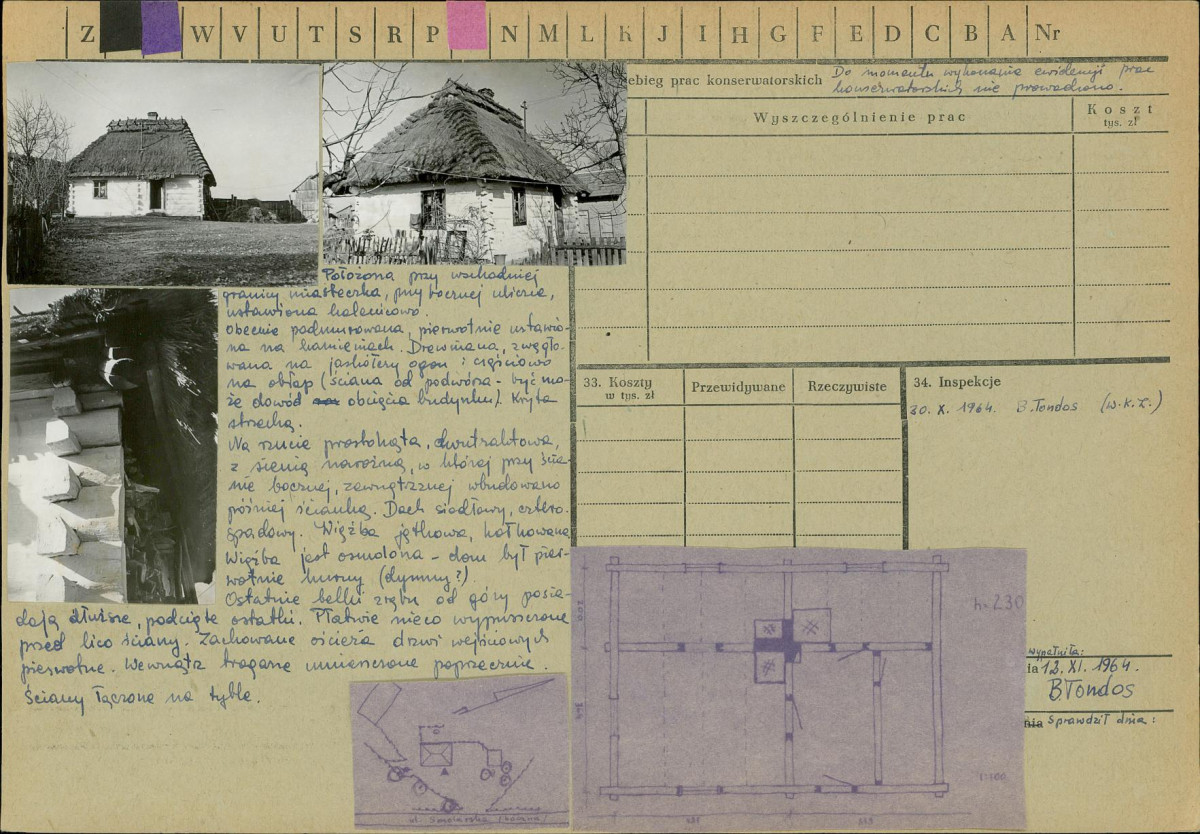 Z W V U T S R P N M L K J I H G F E D C B A Nr
ebieg prac konserwatorskich Do momentu wykonania ewidencji prac
konserwatorskich nie prowadzono.
Wyszczególnienie prac
Koszt
tys. zł
Położona przy wschodniej
granicy miasteczka, przy bocznej uliczce,
ustawiona kalenicowo.
Obecnie podmurowana, pierwotnie ustawio-
na na kamieniach. Drewniana, zwęgło-
wana na jaskółczy ogon i częściowo
na obłap (ściana od podwórza - być mo-
że dowód obcięcia budynku). Kryta
strzechą.
Na rzucie prostokąta, dwutraktowa,
z sienią narożną, w której przy ścia-
nie bocznej, zewnętrznej wbudowano
później ściankę. Dach siodłowy, cztero-
spadowy. Więźba jętkowa, kołkowana
Więźba jest osmolona - dom był pier-
wotnie kurny (dymny?)
Ostatnie belki zrębu od góry posia-
dają dłuższe, podcięte ostatki. Płatwie nieco wypuszczone
przed lico ściany. Zachowane ościeża drzwi wejściowych
pierwotne. Wewnątrz tragarze umieszczone poprzecznie.
Ściany łączone na tyble.
33. Koszty
w tys. zł
Przewidywane
Rzeczywiste
34. Inspekcje
30. X. 1964. B. Tondos (W.K.Z.)
h=230
200
1:100
ul. Smolarska
wypełniła:
ia 12. XI. 1964.
BTondos
Sprawdził dnia: